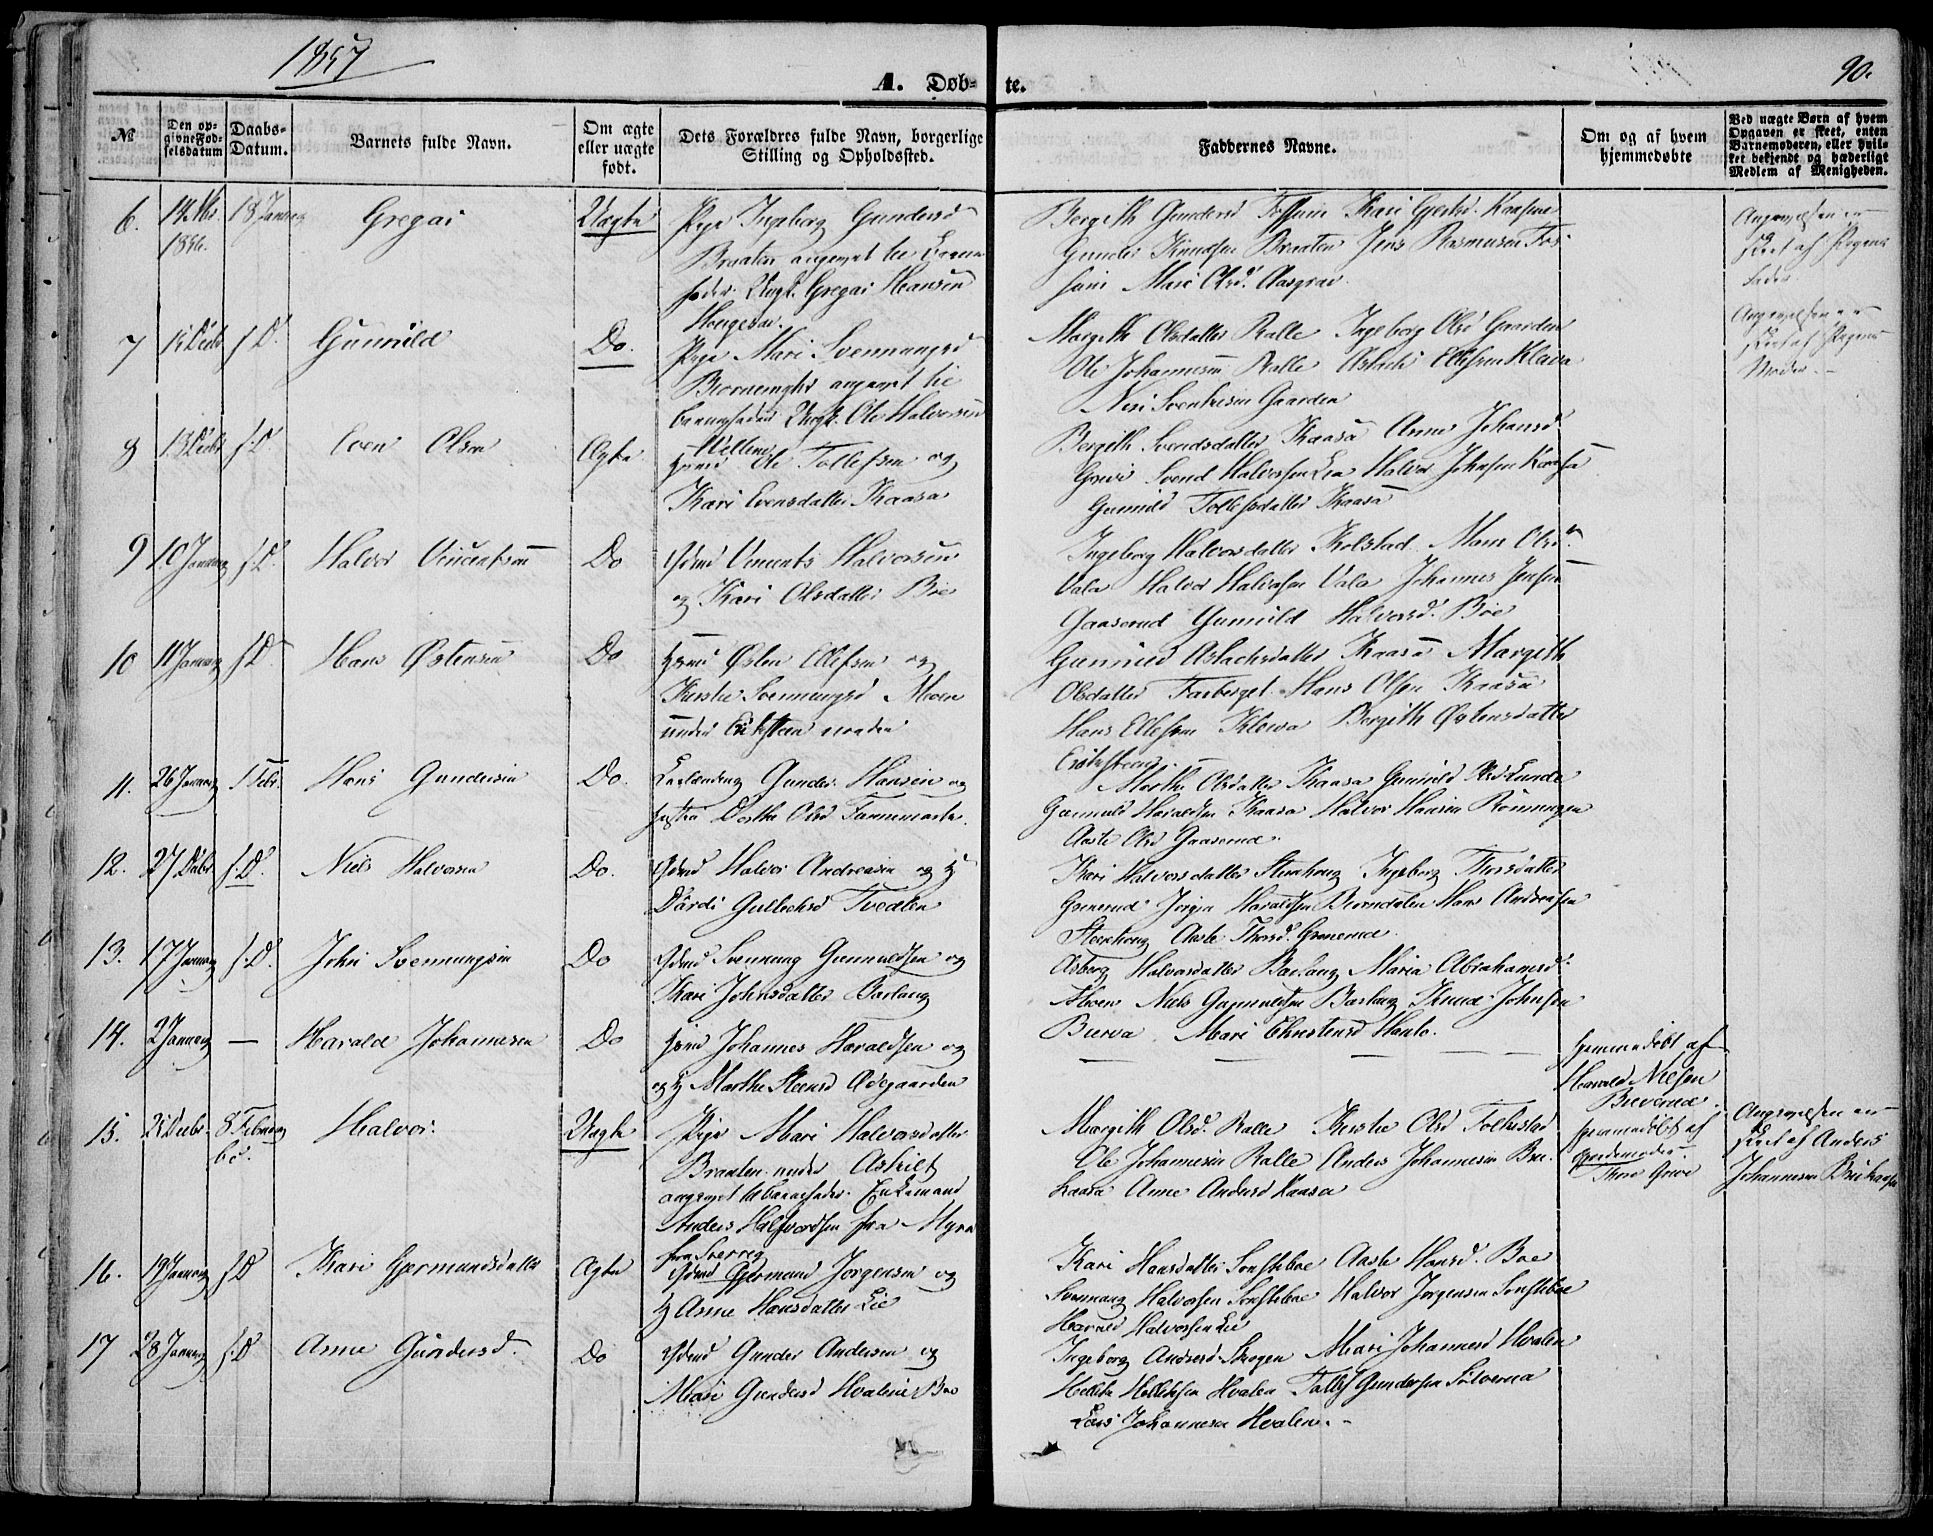 1857
A. Døb-
te.
90.
№
Den op-
givne Fød-
selsdatum
Daabs-
Datum.
Barnets fulde Navn.
Om ægte
eller uægte
født.
Dets Forældres fulde Navn, borgerlige
Stilling og Opholdssted.
Faddernes Navne.
Om og af hvem
hjemmedøbte
Ved uægte Børn af hvem
Opgaven er skeet, enten
Barnemoderen, eller hvil-
ket bekjendt og hæderligt
Medlem af Menigheden.
6.
1856.
18 Januar
Gregar
Uægte
Pige Ingeborg Gundersd
Braaten angivet til Barne
fader Ungk. Gregar Hansen
Haugen
Bergith Gundersd Fossum Kari Kaasene
Gunder Knudsen Braaten Jens Rasmusen Fos-
sum Mari Olsd. Aasgrav
Angivelsen er
skeet af Pigens
Fader
7
s. D.
Gunnild
Do.
Pige Mari Svennungsd
angivet til
barnefader Ungk. Ole Halvorsen
Margith Olsdatter Ralle Ingeborg Olsd Gaarden
Ole Johannesen Ralle Aslach Ellefsen Kleiva
Gaarden
Angivelsen er
skeet af Pigens
Moder
8
13 Decbr
s. D.
Even Olsen
Ægte
Ole Tollefsen og
Kari Evensdatter Kaasa
Bergith Svendsdatter Kaasa Anne Johansd
Svend Halvorsen Lia Halvor Johnsen Kaasa
Gunnild Tollefsdatter Kaasa
9
10 Januar
s. D.
Halvor Vincentsen
Do
Gbmd Vincents Halvorsen
og Kari Olsdatter Bøe
Ingeborg Halvorsdatter Kolstad Maren Olsd.
Vala Halvor Halvorsen Vala Johannes Jensen
Gaaserud Gunnild Halvorsd. Bøe
10
11 Januar
s. D.
Hans Østensen
Do
Østen Ellefsen og
Kirstie Svennungsd Moen
under
Gunnild Aslachsdatter Kaasa Margith
Olsdatter Farberget Hans Olsen Kaasa
Hans Ellefsen Kleiva Bergith Østensdatter
11.
26 Januar
1 Febr.
Hans Gundersen
Do.
Gunder Hansen og
hustru Dorthe Olsd
Marthe Olsdatter Kaasa Gunnild Olsd Lunde
Gunnuld Haraldsen Kaasa Halvor Hansen Rønningen
Aaste Olsd Gaaserud.
12.
27 Decbr
s. D.
Niels Halvorsen
Do.
Gbmd Halvor Andreasen og H
Gullechsd Tvedten
Kari Halvorsdatter Steenhoug Ingeborg Thorsdatter
Grønerud Jørgen Haraldsen Hans Andreasen
Steenhoug Aaste Thorsd. Grønerud
13.
17 Januar
s. D.
John Svennungsen
Do
Gbmd Svennung Gunnuldsen og
Kari Johnsdatter Barlaug
Asberg Halvorsdatter Barlaug Maria Abrahamsd.
Moen Niels Gunnuldsen Barlaug Knud Johnsen
Mari Christensd
14.
2 Januar
—
Harald Johannesen
Do
Johannes Haraldsen og
og H Marthe Steensd Ødegaarden
Hjemmedøbt af
Harald Nielsen
15.
8 Februar
Halvor.
Uægte
Pige Mari Halvorsdatter
Braaten under Askilt
angivet til barnefader Enkemand
Anders Halvordsen fra Myra
fra Sverrig
Margith Olsd. Ralle Kirstie Olsd Folkestad
Ole Johannesen Ralle Anders Johannesen Bre-
kaasa Anne Andersd Kaasa
Hjemmedøbt af
Gjordemoder
Angivelsen er
skeet af Anders
Johannesen Brekaasa
16.
19 Januar
s. D
Kari Gjermundsdatter
Ægte
Gbmd Gjermund Jørgensen og
H Anne Hansdatter Lie
Kari Hansdatter Sønstebøe Aaste Hansd. Bøe
Svennung Halvorsen Sønstebøe Halvor Jørgensen Sønstebøe
Harald Halvorsen Lie
17
28 Januar
s. D
Anne Gundersd.
Do
Gbmd Gunder Andersen og
Mari Gundersd Hvalen Bøe
Ingeborg Andersd Skogen Mari Johannesd Hvalen
Hvalen Tollef Gundersen
Lars Johannesen Hvalen